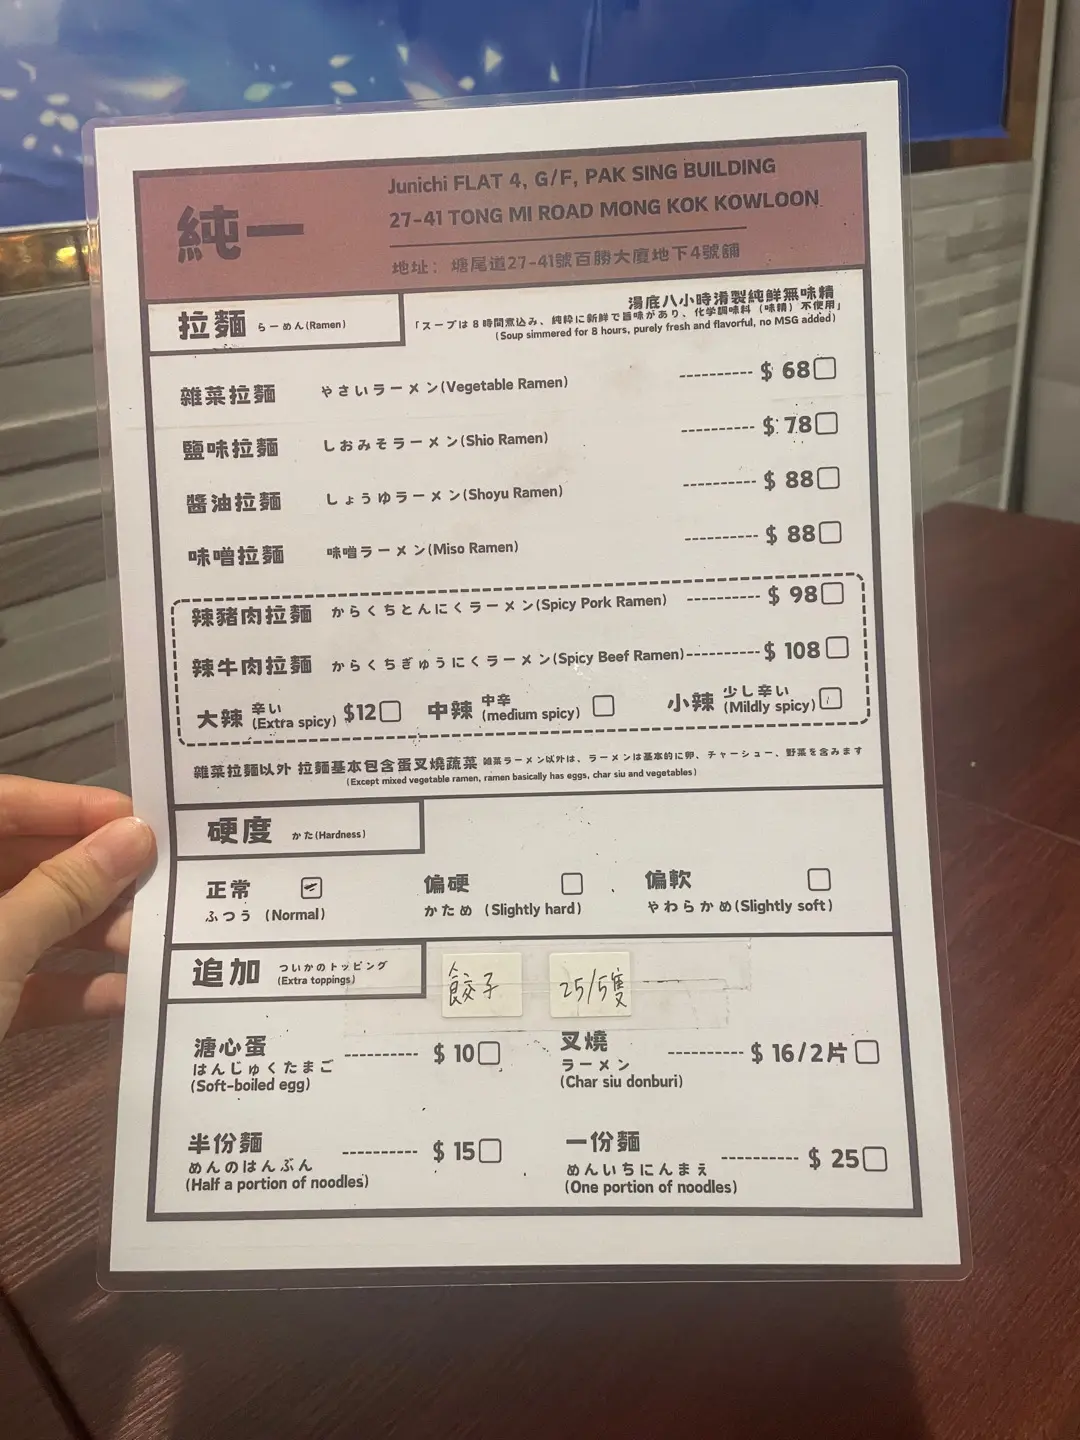 純一
Junichi FLAT 4, G/F, PAK SING BUILDING
27-41 TONG MI ROAD MONG KOK KOWLOON
地址：塘尾道27-41號百勝大廈地下4號舖
拉麵 らーめん(Ramen)
湯底八小時淆製純鮮無味精
「スープは8時間煮込み、純粋に新鮮で旨味があり、化学調味料（味精）不使用」
(Soup simmered for 8 hours, purely fresh and flavorful, no MSG added)
雜菜拉麵 やさいラーメン(Vegetable Ramen) ---------- $ 68
鹽味拉麵 しおみそラーメン(Shio Ramen) ---------- $ 78
醬油拉麵 しょうゆラーメン(Shoyu Ramen) ---------- $ 88
味噌拉麵 味噌ラーメン(Miso Ramen) ---------- $ 88
辣豬肉拉麵 からくちとんにくラーメン(Spicy Pork Ramen) ---------- $ 98
辣牛肉拉麵 からくちぎゅうにくラーメン(Spicy Beef Ramen)---------- $ 108
大辣 辛い (Extra spicy) $12 中辣 中辛 (medium spicy) 小辣 少し辛い (Mildly spicy)
雜菜拉麵以外 拉麵基本包含蛋叉燒蔬菜 雑菜ラーメン以外は、ラーメンは基本的に卵、チャーシュー、野菜を含みます
(Except mixed vegetable ramen, ramen basically has eggs, char siu and vegetables)
硬度 かた(Hardness)
正常 偏硬 偏軟
ふつう (Normal) かため (Slightly hard) やわらかめ(Slightly soft)
追加 ついかのトッピング (Extra toppings)
餃子 25/5隻
溏心蛋 ---------- $ 10 叉燒 ---------- $ 16/2片
はんじゅくたまご ラーメン
(Soft-boiled egg) (Char siu donburi)
半份麵 ---------- $ 15 一份麵 ---------- $ 25
めんのはんぶん めんいちにんまえ
(Half a portion of noodles) (One portion of noodles)